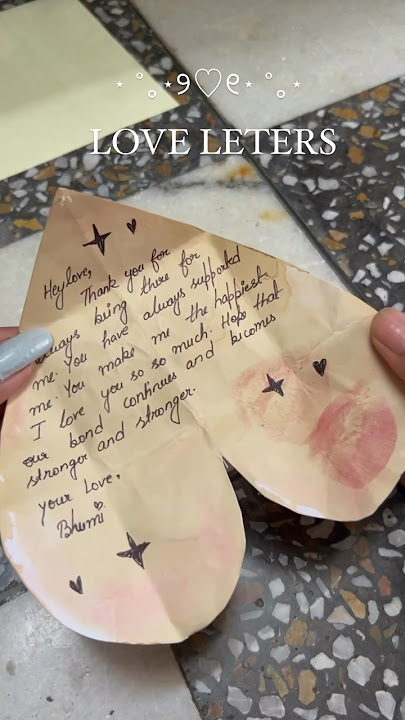 LOVE LETERS
Heylove,
Thank you for
always being there for
me. You have always supported
me. You make me the happiest.
I love you so so much. Hope that
our bond continues and becomes
stronger and stronger.
your Love,
Bhumi